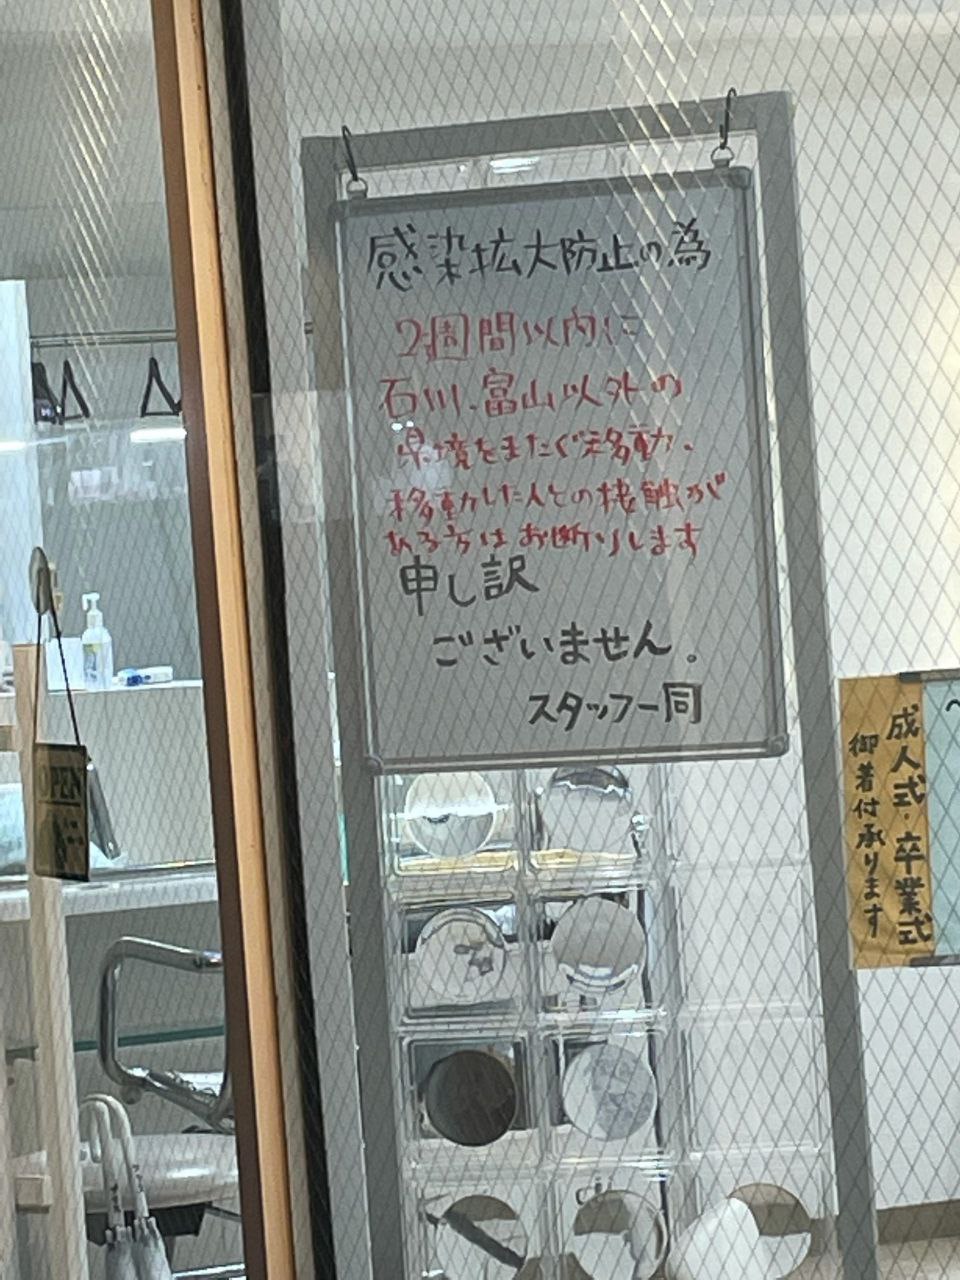 感染拡大防止の為
2週間以内に
石川、富山以外の
県境をまたぐ移動、
移動した人との接触が
ある方はお断りします
申し訳
ございません。
スタッフ一同
OPEN
成人式・卒業式
御着付承ります